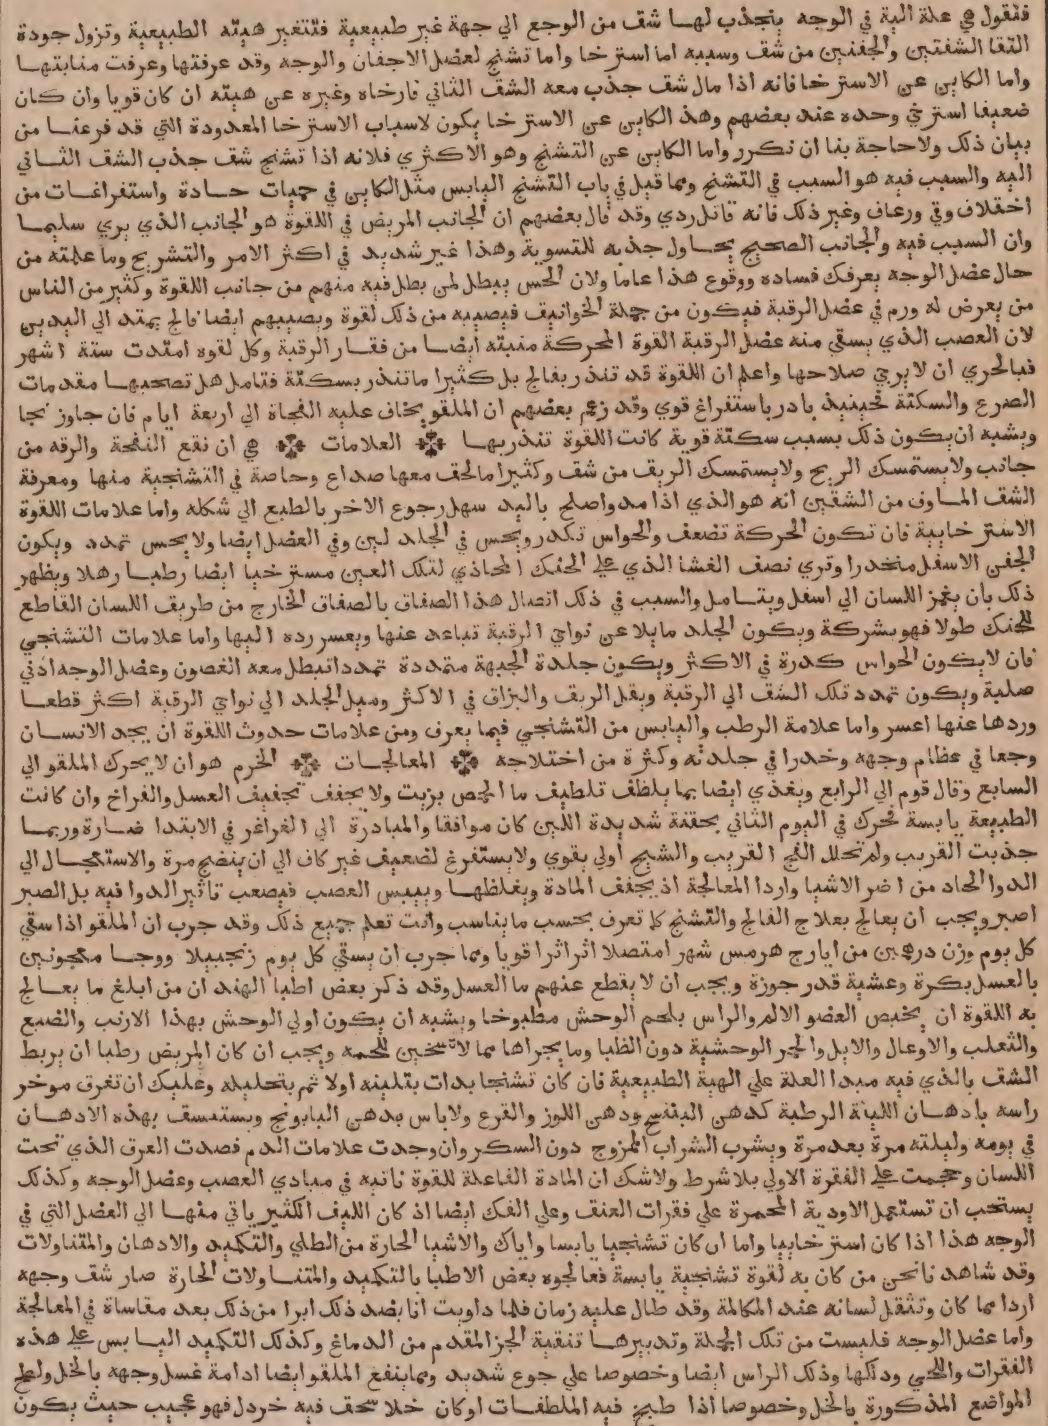 فنقول هي علة الية في الوجه ينجذب لها شق من الوجع الي جهة غير طبيعية فتتغير هيئته الطبيعية وتزول جودة
التقا الشفتين والجفنين من شق وسببه اما استرخا واما تشنج لعضل الاجفان والوجه وقد عرفتها وعرفت منابتها
واما الكاين عن الاسترخا فانه اذا مال شق جذب معه الشق الثاني فارخاه وغيره عن هيئته ان كان قويا وان كان
ضعيفا استرخي وحده عند بعضهم وهذ الكاين عن الاسترخا يكون لاسباب الاسترخا المعدودة التي قد فرغنا من
بيان ذلك ولا حاجة بنا ان نكرر واما الكاين عن التشنج وهو الاكثري فلانه اذا تشنج شق جذب الشق الثاني
اليه والسبب فيه هو السبب في التشنج ومما قيل في باب التشنج اليابس مثل الكاين في حميات حادة واستفراغات من
اختلاف وقي ورعاف وغير ذلك فانه قاتل ردي وقد قال بعضهم ان الجانب المريض في اللقوة هو الجانب الذي يري سليما
وان السبب فيه والجانب الصحيح يحاول جذبه للتسوية وهذا غير شديد في اكثر الامر والتشريح وما علمته من
حال عضل الوجه يعرفك فساده ووقوع هذا عاما ولان الحس يبطل لمن بطل فيه منهم من جانب اللقوة وكثير من الناس
من يعرض له ورم في عضل الرقبة فيكون من جملة الخوانيق فيصيبه من ذلك لقوة ويصيبهم ايضا فالج يمتد الي اليدين
لان العصب الذي يسقي منه عضل الرقبة القوة المحركة منبته ايضا من فقار الرقبة وكل لقوه امتدت ستة اشهر
فبالحري ان لا يرجي صلاحها واعلم ان اللقوة قد تنذر بفالج بل كثيرا ما تنذر بسكتة فتامل هل تصحبها مقدمات
الصرع والسكتة فحينيذ بادر باستفراغ قوي وقد زعم بعضهم ان الملقو يخاف عليه الفجاة الي اربعة ايام فان جاوز نجا
ويشبه ان يكون ذلك بسبب سكتة قوية كانت اللقوة تنذر بها العلامات هي ان نقع النفخة والرقه من
جانب ولا يستمسك الريح ولا يستمسك الريق من شق وكثيرا ما لحق معها صداع وخاصة في التشنجية منها ومعرفة
الشق الماوف من الشقين انه هو الذي اذا مد واصلح باليد سهل رجوع الاخر بالطبع الي شكله واما علامات اللقوة
الاسترخايية فان تكون الحركة تضعف والحواس تكدر ويحس في الجلد لين وفي العضل ايضا ولا يحس تمدد ويكون
الجفن الاسفل منحدرا وتري نصف الغشا الذي علي الحنك المحاذي لتلك العين مسترخيا ايضا رطبا رهلا ويظهر
ذلك بان يغمز اللسان الي اسفل ويتامل والسبب في ذلك اتصال هذا الصفاق بالصفاق الخارج من طريق اللسان القاطع
للحنك طولا فهو بشركة ويكون الجلد مايلا عن نواحي الرقبة تباعد عنها ويعسر رده اليها واما علامات التشنجي
فان لا يكون الحواس كدرة في الاكثر ويكون جلدة الجبهة متمددة تمددا تبطل معه الغضون وعضل الوجه اذني
صلبة ويكون تمدد تلك الشق الي الرقبة ويقل الريق والبزاق في الاكثر وميل الجلد الي نواحي الرقبة اكثر قطعا
وردها عنها اعسر واما علامة الرطب واليابس من التشنجي فيما يعرف ومن علامات حدوث اللقوة ان يجد الانسان
وجعا في عظام وجهه وخدرا في جلدته وكثرة من اختلاجه المعالجات الحزم هو ان لا يحرك الملقو الي
السابع وقال قوم الي الرابع ويغذي ايضا بما يلطف تلطيف ما الحمص بزيت ولا يجفف تجفيف العسل والفراخ وان كانت
الطبيعة يابسة فحرك في اليوم الثاني بحقنة شديدة اللين كان موافقا والمبادرة الي الغراغر في الابتدا ضارة وربما
جذبت القريب ولم تحلل الفج القريب والشبح اولي بقوي ولا يستفرغ لضعيف غير كاف الي ان ينضج مرة والاستعجال الي
الدوا الحاد من اضر الاشيا واردا المعالجة اذ يجفف المادة ويغلظها وييبس العصب فيصعب تاثير الدوا فيه بل الصبر
اصبر ويجب ان يعالج بعلاج الفالج والتشنج كما تعرف بحسب ما يناسب وانت تعلم جميع ذلك وقد جرب ان الملقو اذا سقي
كل يوم وزن درهمين من ايارج هرمس شهرا متصلا اثر اثرا قويا ومما جرب ان يسقي كل يوم زنجبيلا ووجا معجونين
بالعسل بكرة وعشية قدر جوزة ويجب ان لا يقطع عنهم ما العسل وقد ذكر بعض اطبا الهند ان من ابلغ ما يعالج
به اللقوة ان يخبص العضو الالم والراس بلحم الوحش مطبوخا ويشبه ان يكون اولي الوحش بهذا الارنب والضبع
والثعلب والاوعال والايل والحمر الوحشية دون الظبا وما يجراها مما لا تسخين للحمه ويجب ان كان المريض رطبا ان يربط
الشق بالذي فيه مبدا العلة علي الهية الطبيعية فان كان تشنجا بدات بتليينه اولا ثم بتحليله وعليك ان تغرق موخر
راسه بادهان اللينة الرطبة كدهن البنفسج ودهن اللوز والقرع ولا باس بدهن البابونج ويستسقف بهذه الادهان
في يومه وليلته مرة بعد مرة ويشرب الشراب الممزوج دون السكر وان وجدت علامات الدم فصدت العرق الذي تحت
اللسان وحجمت علي الفقرة الاولي بلا شرط ولا شك ان المادة الفاعلة للقوة ناتيه في مبادي العصب وعضل الوجه وكذلك
يستحب ان تستعمل الادوية المحمرة علي فقرات العنق وعلي الفك ايضا اذ كان الليف الكثير ياتي منها الي العضل التي في
الوجه هذا اذا كان استرخاييا واما ان كان تشنجيا يابسا واياك والاشيا الحارة من الطلي والتكميد والادهان والمتناولات
وقد شاهدنا نحن من كان به لقوة تشنجية يابسة فعالجوه بعض الاطبا بالتكميد والمتناولات الحارة صار شق وجهه
اردا مما كان وتثقل لسانه عند المكالمة وقد طال عليه زمان فلما داويت انا بضد ذلك ابرا من ذلك بعد مقاساة في المعالجة
واما عضل الوجه فليست من تلك الجملة وتدبيرها تنقية الجز المقدم من الدماغ وكذلك التكميد اليابس علي هذه
الفقرات واللحي ودلكها وذلك الراس ايضا وخصوصا علي جوع شديد ومما ينفع الملقو ايضا ادامة غسل وجهه بالخل ولطخ
المواضع المذكورة بالخل وخصوصا اذا طبخ فيه الملطفات او كان خلا سحق فيه خردل فهو عجيب حيث يكون